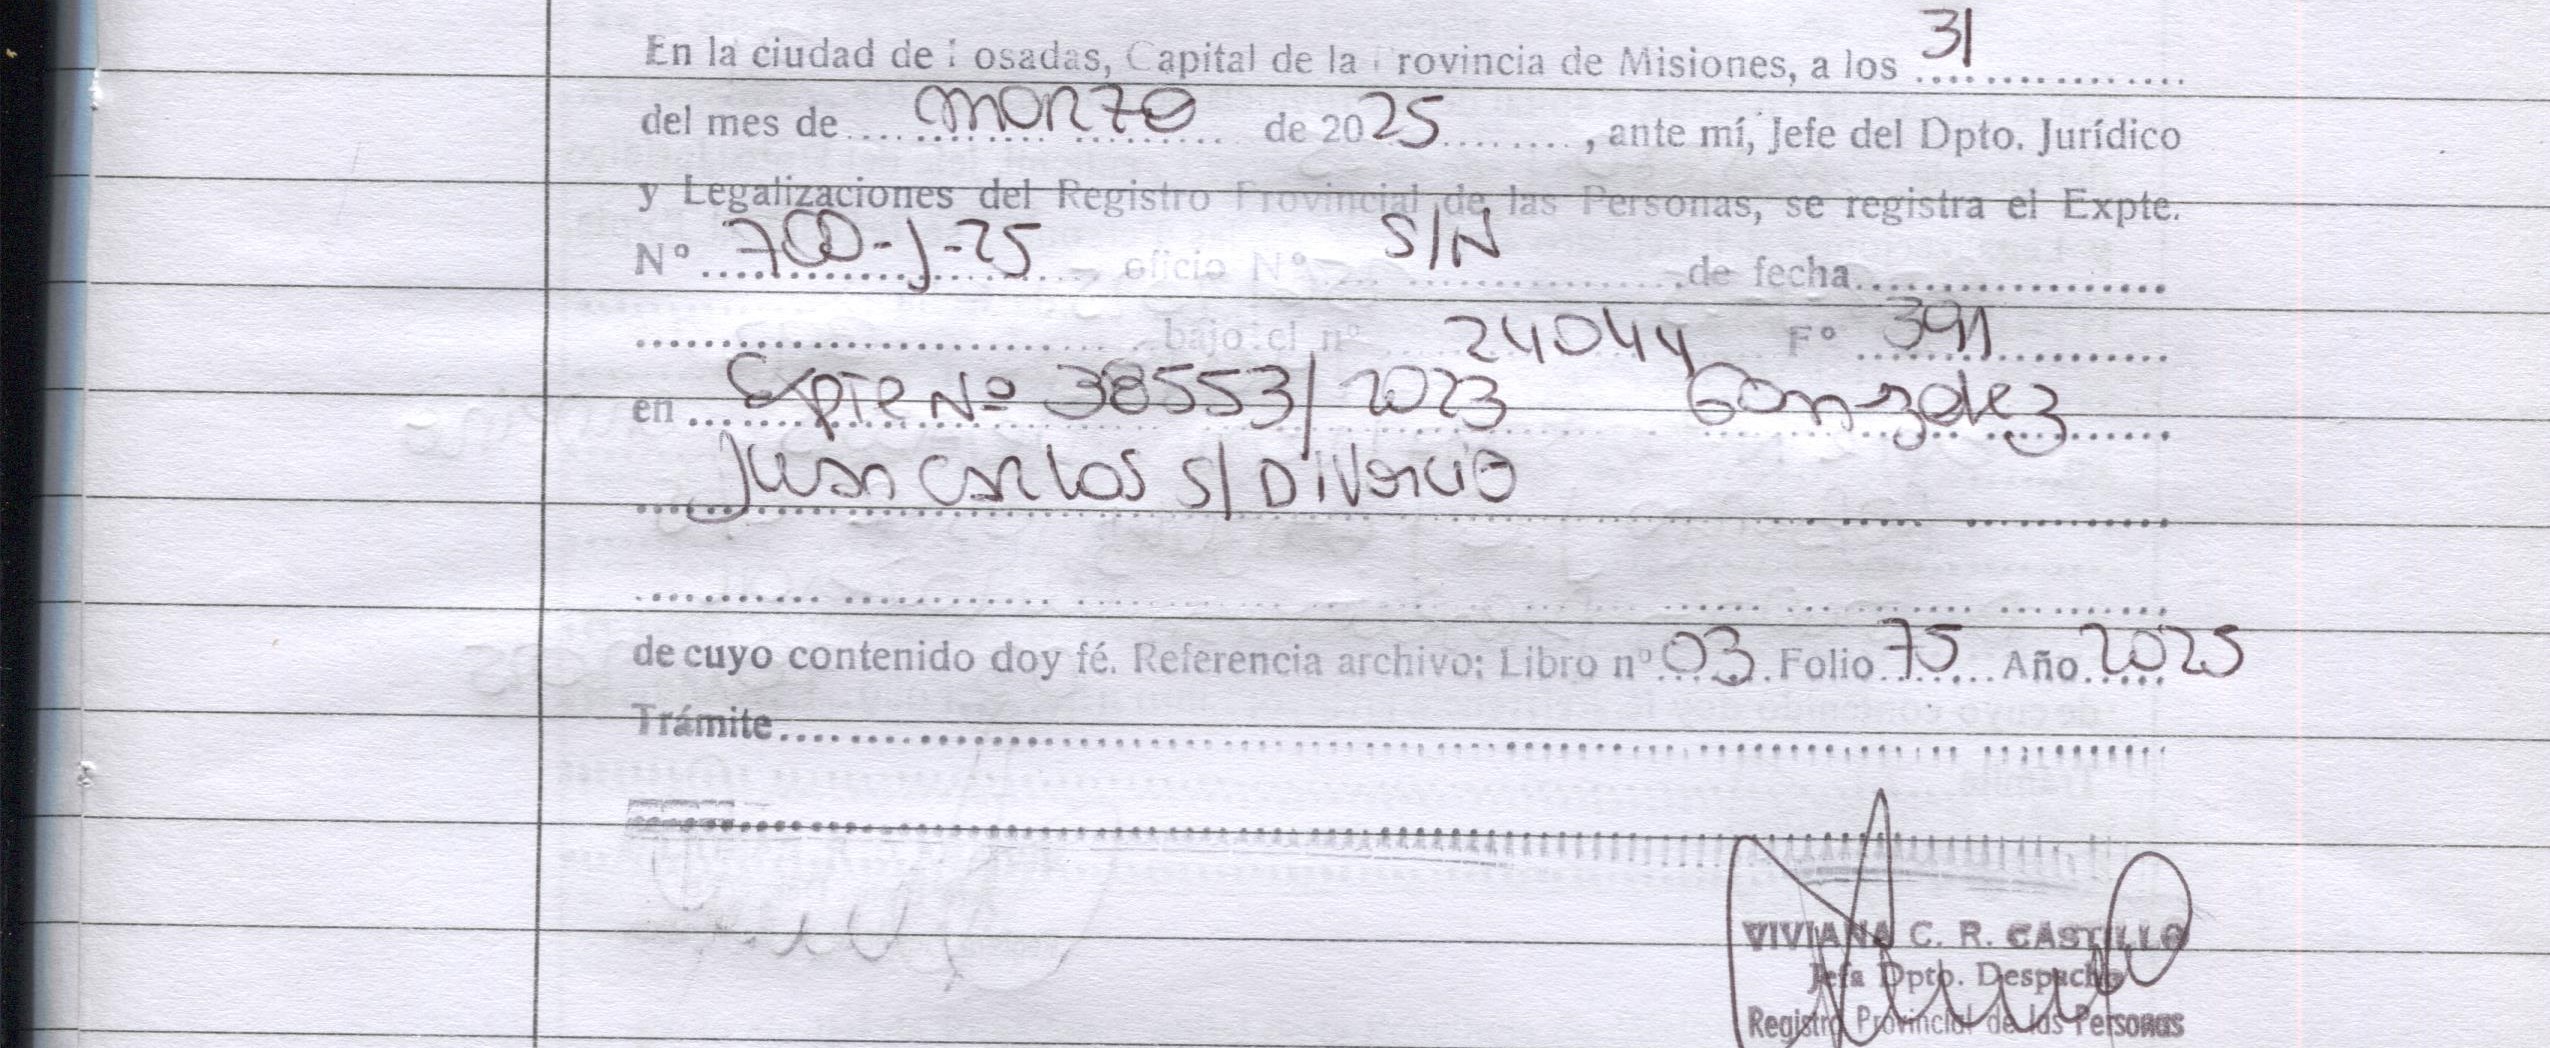 En la ciudad de Posadas, Capital de la Provincia de Misiones, a los 31
del mes de marzo de 2025, ante mí, Jefe del Dpto. Jurídico
y Legalizaciones del Registro Provincial de las Personas, se registra el Expte.
Nº 700-J-25 oficio Nº S/N de fecha
bajo el nº 24044 Fº 391
en Expte Nº 38553/2023 Gonzalez
Juan Carlos S/ Divorcio
de cuyo contenido doy fé. Referencia archivo: Libro nº 03 Folio 75 Año 2025
Trámite
VIVIANA C. R. CASTILLO
Jefa Dpto. Despacho
Registro Provincial de las Personas